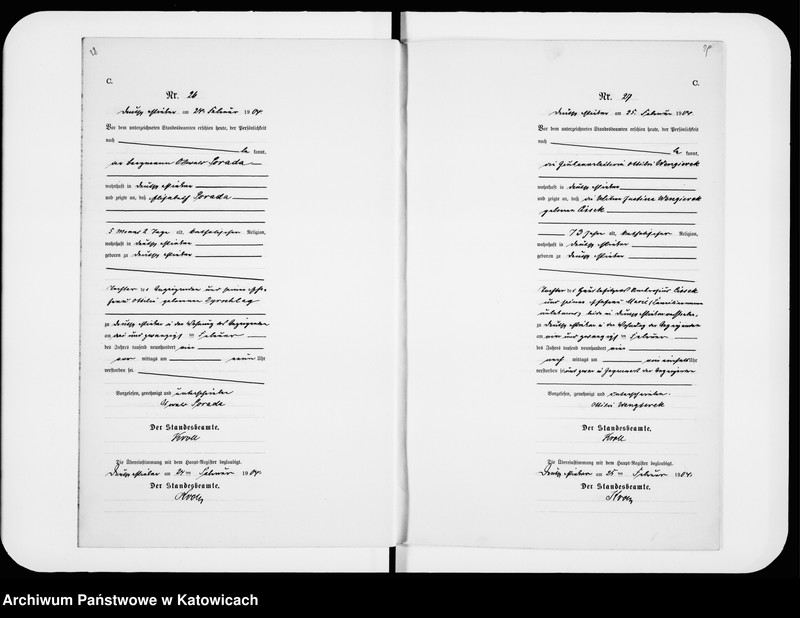 28
C.
Nr. 26
Deutsch am 24. Februar 1904.
Vor dem unterzeichneten Standesbeamten erschien heute, der Persönlichkeit
nach
be kannt,
der Bergmann Oswald Porada
wohnhaft in Deutsch
und zeigte an, daß Elisabeth Porada
5 Monat 2 Tage alt, katholischer Religion,
wohnhaft in Deutsch
geboren zu Deutsch
Tochter des Anzeigenden und seiner Ehe-
frau Ottilie geborenen
zu Deutsch in der Wohnung des Anzeigenden
am drei und zwanzigsten Februar
des Jahres tausend neunhundert vier
vor mittags um neun Uhr
verstorben sei.
Vorgelesen, genehmigt und unterschrieben
Oswald Porada
Der Standesbeamte.
Kroll
Die Übereinstimmung mit dem Haupt-Register beglaubigt.
Deutsch am 24ten Februar 1904.
Der Standesbeamte.
Kroll
29
C.
Nr. 27
Deutsch am 25. Februar 1904.
Vor dem unterzeichneten Standesbeamten erschien heute, der Persönlichkeit
nach
be kannt,
die Ottilie Wengierek
wohnhaft in Deutsch
und zeigte an, daß die Witwe Justina Wengierek
geborene Cisek
73 Jahre alt, katholischer Religion,
wohnhaft in Deutsch
geboren zu Deutsch
Tochter des Ambrosius Cisek
und seiner Ehefrau Marie
beide in Deutsch
zu Deutsch in der Wohnung der Anzeigenden
am vier und zwanzigsten Februar
des Jahres tausend neunhundert vier
nach mittags um ein halb Uhr
verstorben sei und zwar in Gegenwart der Anzeigenden
Vorgelesen, genehmigt und unterschrieben.
Ottilie Wengierek
Der Standesbeamte.
Kroll
Die Übereinstimmung mit dem Haupt-Register beglaubigt.
Deutsch am 25ten Februar 1904.
Der Standesbeamte.
Kroll
Archiwum Państwowe w Katowicach